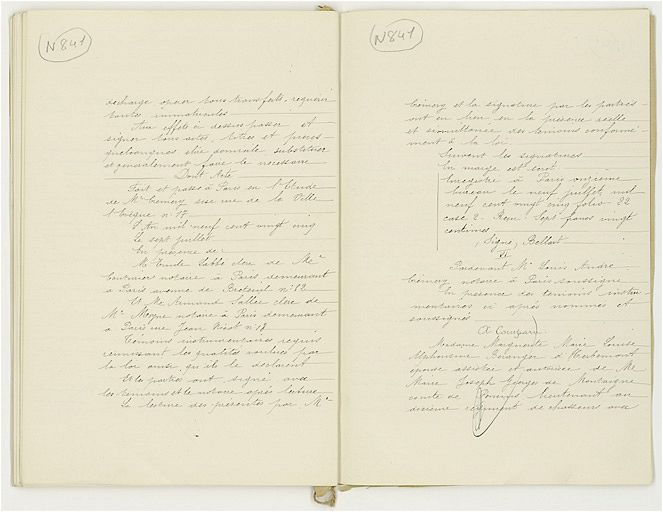 N 841
décharge, opérer tous transferts, requérir
toutes immatricules
Aux effets ci dessus passer et
signer tous actes, titres et pièces
quelconques élire domicile substituer
et généralement faire le nécessaire
Dont Acte
Fait et passé à Paris en l'Etude
de Me sise rue de la Ville
l'Evêque no 18
L'An mil neuf cent vingt cinq
Le sept juillet
En présence de:
M. Emile Labbé clerc de Me
notaire à Paris demeurant
à Paris avenue de Breteuil no 62
Et Mr Armand Sallé clerc de
Me Moyne notaire à Paris demeurant
à Paris rue Jean
Témoins instrumentaires requis
réunissant les qualités voulues par
la loi ainsi qu'ils le déclarent
Et les parties ont signé avec
les témoins et le notaire après lecture
La lecture des présentes par Me
N 841
et la signature par les parties
ont eu lieu en la présence réelle
et simultanée des témoins conformé-
ment à la loi
Suivent les signatures
En marge est écrit
Enregistré à Paris onzième
bureau le neuf juillet mil
neuf cent vingt cinq folio 22
case 2. Reçu: Sept francs vingt
centimes
Signé, Bellart
Pardevant Me Louis André
notaire à Paris soussigné
En présence des témoins instru-
mentaires ci après nommés et
soussignés
A Comparu
Madame Marguerite Marie Louise
Alphonsine Béranger d'Herbemont
épouse assistée et autorisée de Mr
Marie Joseph Georges de
comte de lieutenant au
dixième régiment de chasseurs avec